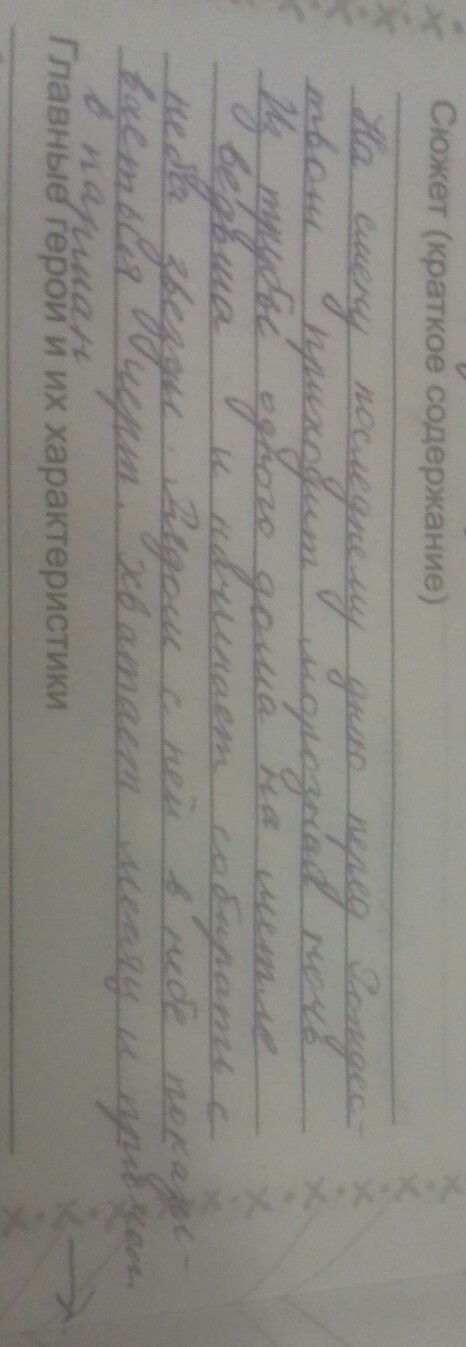 Сюжет (краткое содержание)
На смену последнему дню перед Рождес-
твом приходит морозная ночь
Из трубы одного дома на метле
ведьма и начинает собирать с
неба звезды. Рядом с ней в небе показы-
вается чёрт. Хватает месяц и прячет
в карман
Главные герои и их характеристики